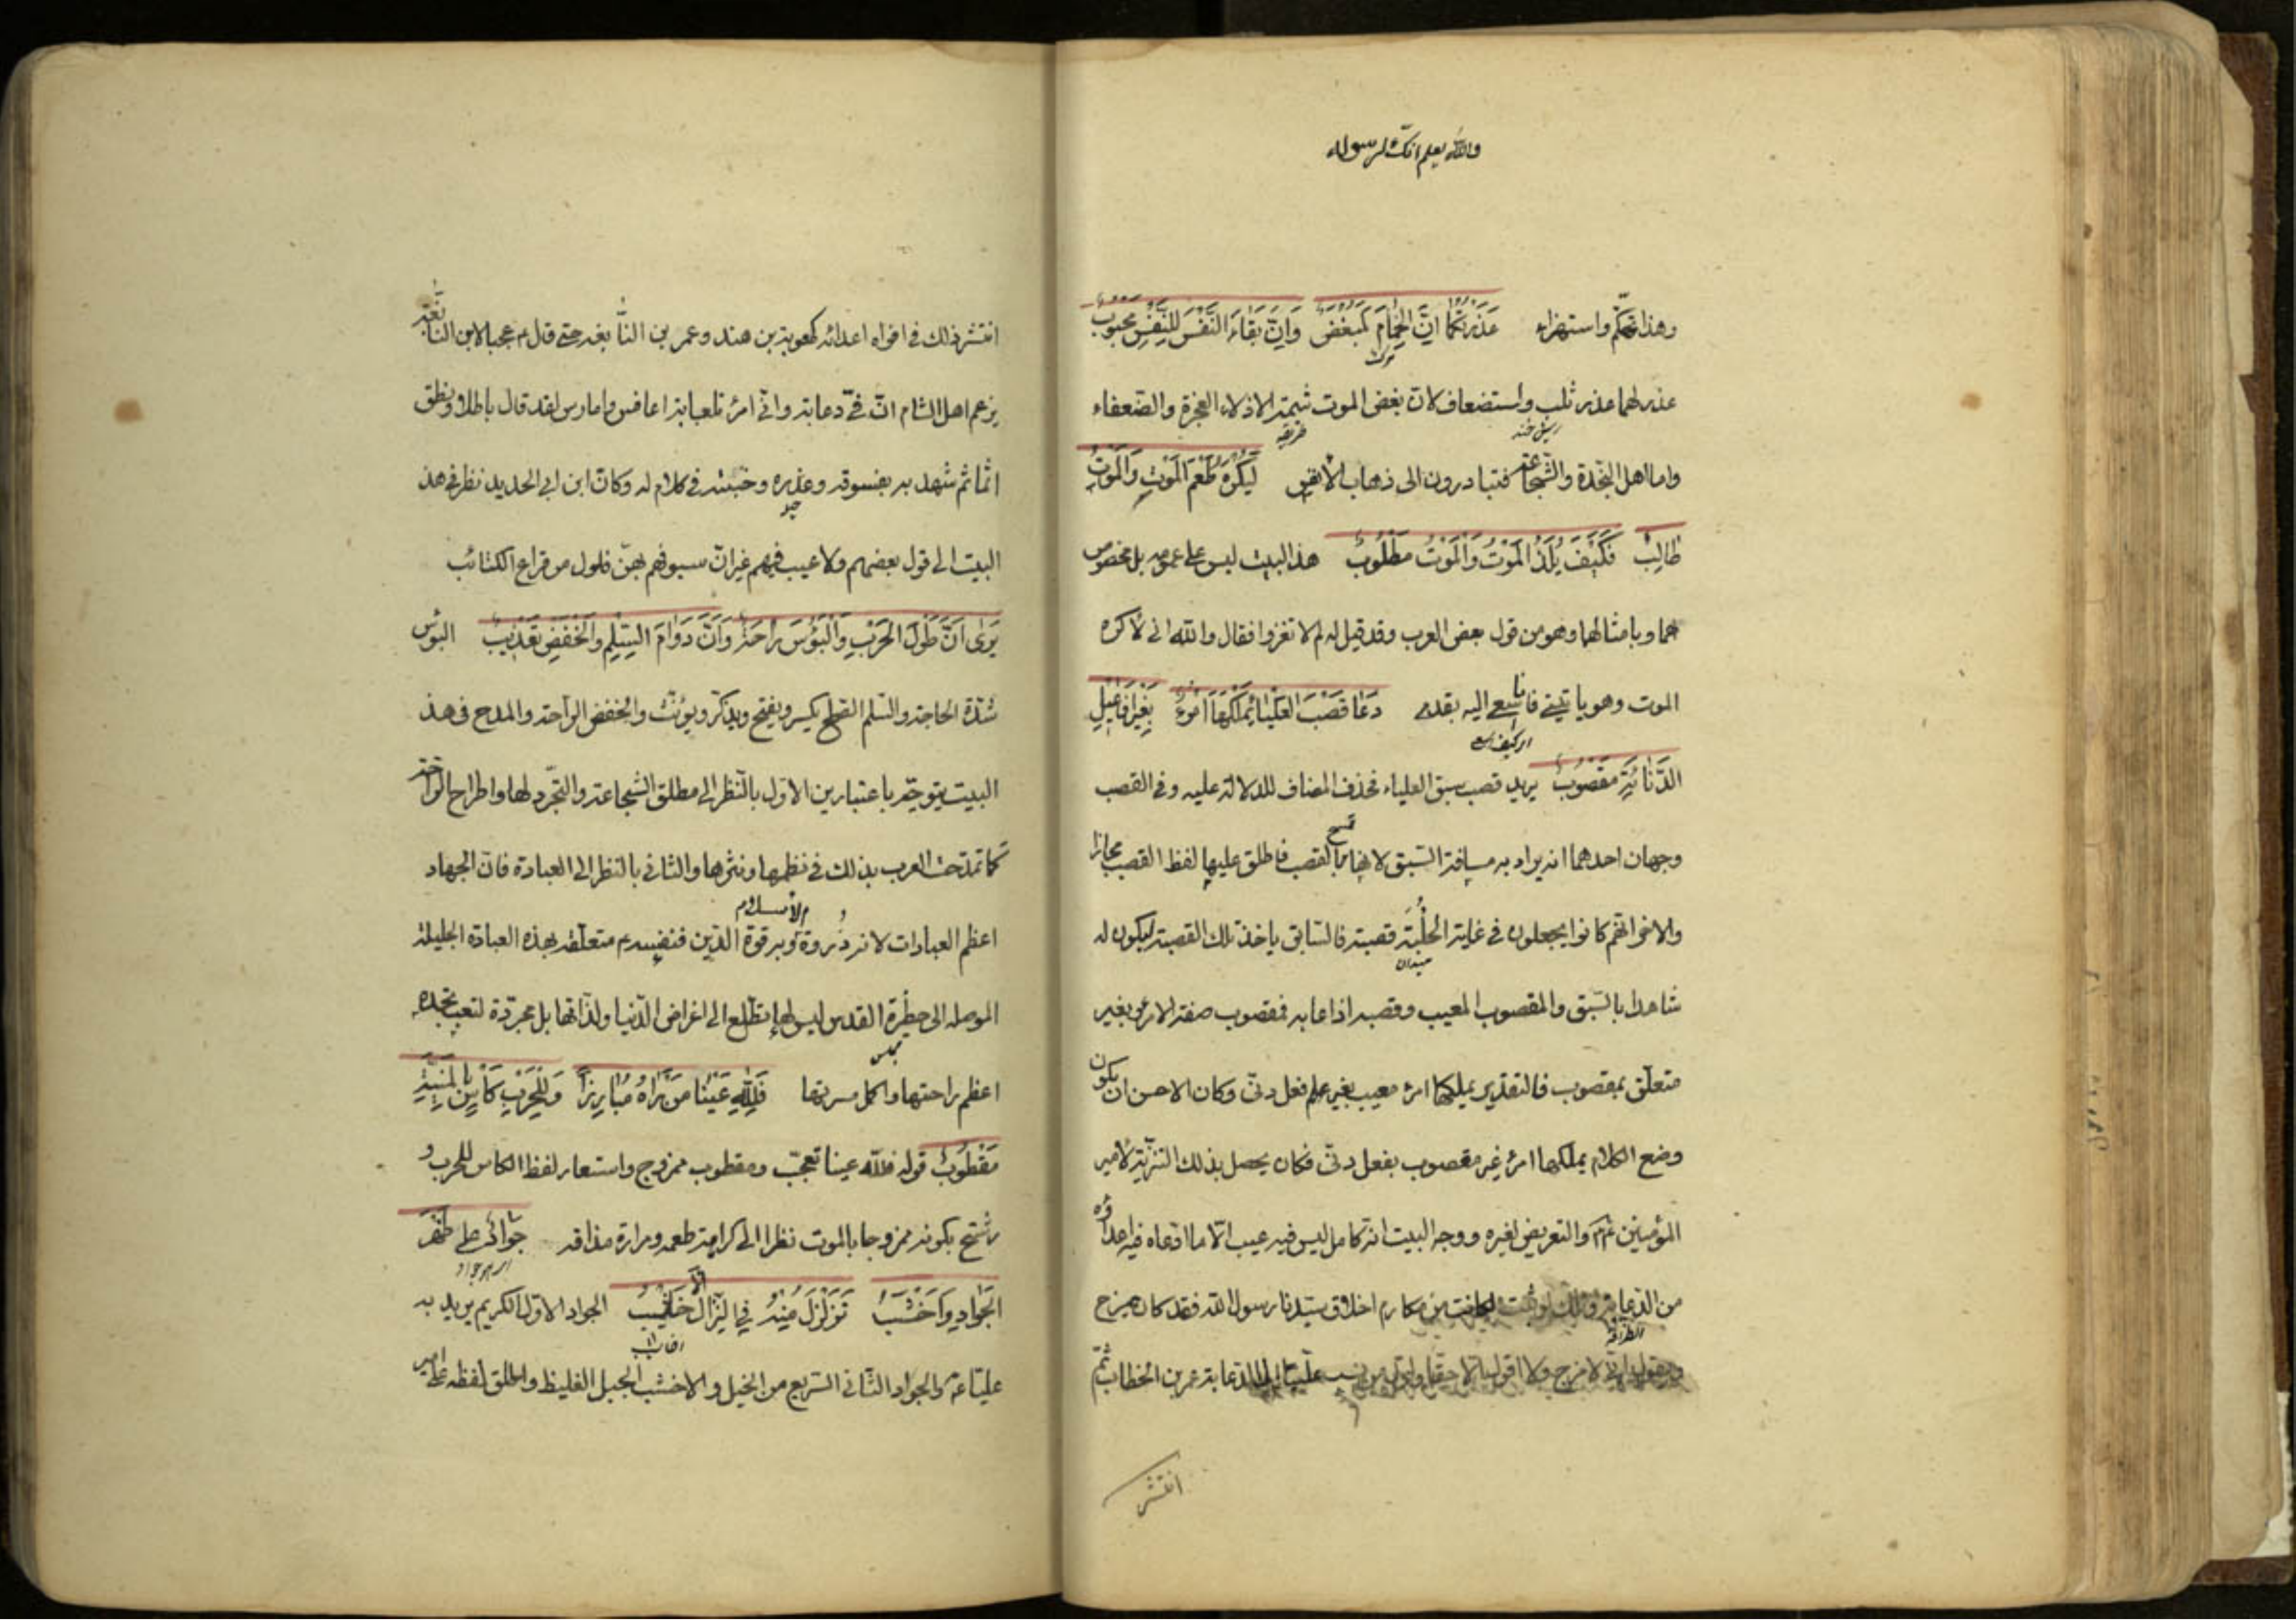 والله يعلم انك لرسوله
وهذا تهكّم واستهزاء عَذَرْتُكُمَا اِنَّ الْحِمَامَ لَمُبْغَضٌ وَاِنَّ بَقَاءَ النَّفْسِ لِلنَّفْسِ مَحْبُوبٌ
مرك
عذرهما عذر ثلب واستضعاف لان بغض الموت شيمة الاذلاء العجزة والضعفاء
ريش خند
واما اهل النجدة والشجاعة فتبادرون الى ذهاب الانفس لَيُكْرَهُ طَعْمُ الْمَوْتِ وَالْمَوْتُ
طَالِبٌ فَكَيْفَ يُلَذُّ الْمَوْتُ وَالْمَوْتُ مَطْلُوبٌ هذا البيت ليس على عمومه بل مخصوص
بهما وبامثالهما وهو من قول بعض العرب وقد قيل له لم لا تغزوا فقال والله انى لأكره
الموت وهو ياتينى فانا اسعى اليه بقدمى دَعَا قَصَبَ الْعَلْيَا يَمْلِكُهَا امْرُؤٌ بِغَيْرِ اَفَاعِيلِ
الدَّنَائَةِ مَقْصُوبٌ يريد قصب سبق العلياء فحذف المضاف للدلالة عليه وفى القصب
وجهان احدهما انه يراد به مسافة السبق لانها تمسح بالقصب فاطلق عليها لفظ القصب مجازا
والاخر انهم كانوا يجعلون فى غاية الحلبة قصبة فالسابق ياخذ تلك القصبة ليكون له
ميدان
شاهدا بالسبق والمقصوب المعيب وقصبه اذا عابه فمقصوب صفة لامرئ وبغير
متعلق بمقصوب فالتقدير يملكها امرؤ معيب بغير فعل دنى وكان الاحسن ان يكون
وضع الكلام يملكها امرؤ غير مقصوب بفعل دنى فكان يحصل بذلك التنزيه لامير
المؤمنين والتعريض لغيره ووجه البيت انه كامل ليس فيه عيب الا ما ادعاه فيه اعداؤه
من الدعابة وذلك لو ثبت لكانت من مكارم اخلاق سيدنا رسول الله فقد كان يمزح
ويقول انى لامزح ولا اقول الا حقا واول من نسب عليا الى الدعابة عمر بن الخطاب ثم
انتشر
انتشر ذلك فى افواه اعدائه كمعوية بن هند وعمر بن النابغة حتى قال م عجبا لابن النابغة
يزعم اهل الشام ان فى دعابة وانى امرؤ تلعابة اعافس وامارس لقد قال باطلا ونطق
اثما ثم شهد به بفسوقه وغدره وخبثه فى كلام له وكان ابن ابى الحديد نظر فى هذا
البيت الى قول بعضهم ولا عيب فيهم غير ان سيوفهم بهن فلول من قراع الكتائب
يَرَى اَنَّ طُولَ الْحَرْبِ وَالْبُؤْسَ رَاحَةٌ وَاَنَّ دَوَامَ السِّلْمِ وَالْخَفْضِ تَعْذِيبٌ البؤس
شدة الحاجة والسلم الصلح يكسر ويفتح ويذكر ويؤنث والخفض الراحة والمدح فى هذا
البيت يتوجه باعتبارين الاول بالنظر الى مطلق الشجاعة والتجرد لها واطراح الراحة
كما تمدحت العرب بذلك فى نظمها ونثرها والثانى بالنظر الى العبادة فان الجهاد
اعظم العبادات لانه ذروة الاسلام وبه قوة الدين فنفسه م متعلقة بهذه العبادة الجليلة
الموصلة الى حظيرة القدس ليس لها تطلع الى اغراض الدنيا ولذاتها بل مجردة لتعب تجده
مجلس
اعظم راحتها واكمل مسرتها فَلِلَّهِ عَيْنَا مَنْ رَاٰهُ مُبَارِزًا وَلِلْحَرْبِ كَأْسٌ بِالْمَنِيَّةِ
مَقْطُوبٌ قوله فلله عينا تعجب ومقطوب ممزوج واستعار لفظ الكاس للحرب و
رشح بكونه ممزوجا بالموت نظرا الى كراهة طعمه ومرارة مذاقه جَوَادٌ عَلَى ظَهْرِ
الْجَوَادِ وَاَخْشَبٌ تَزَلْزَلَ مِنْهُ فِي النِّزَالِ الْاَخَاشِيبُ الجواد الاول الكريم يريد به
عليا م والجواد الثانى السريع من الخيل والاخشب الجبل الغليظ واطلق لفظه على امير